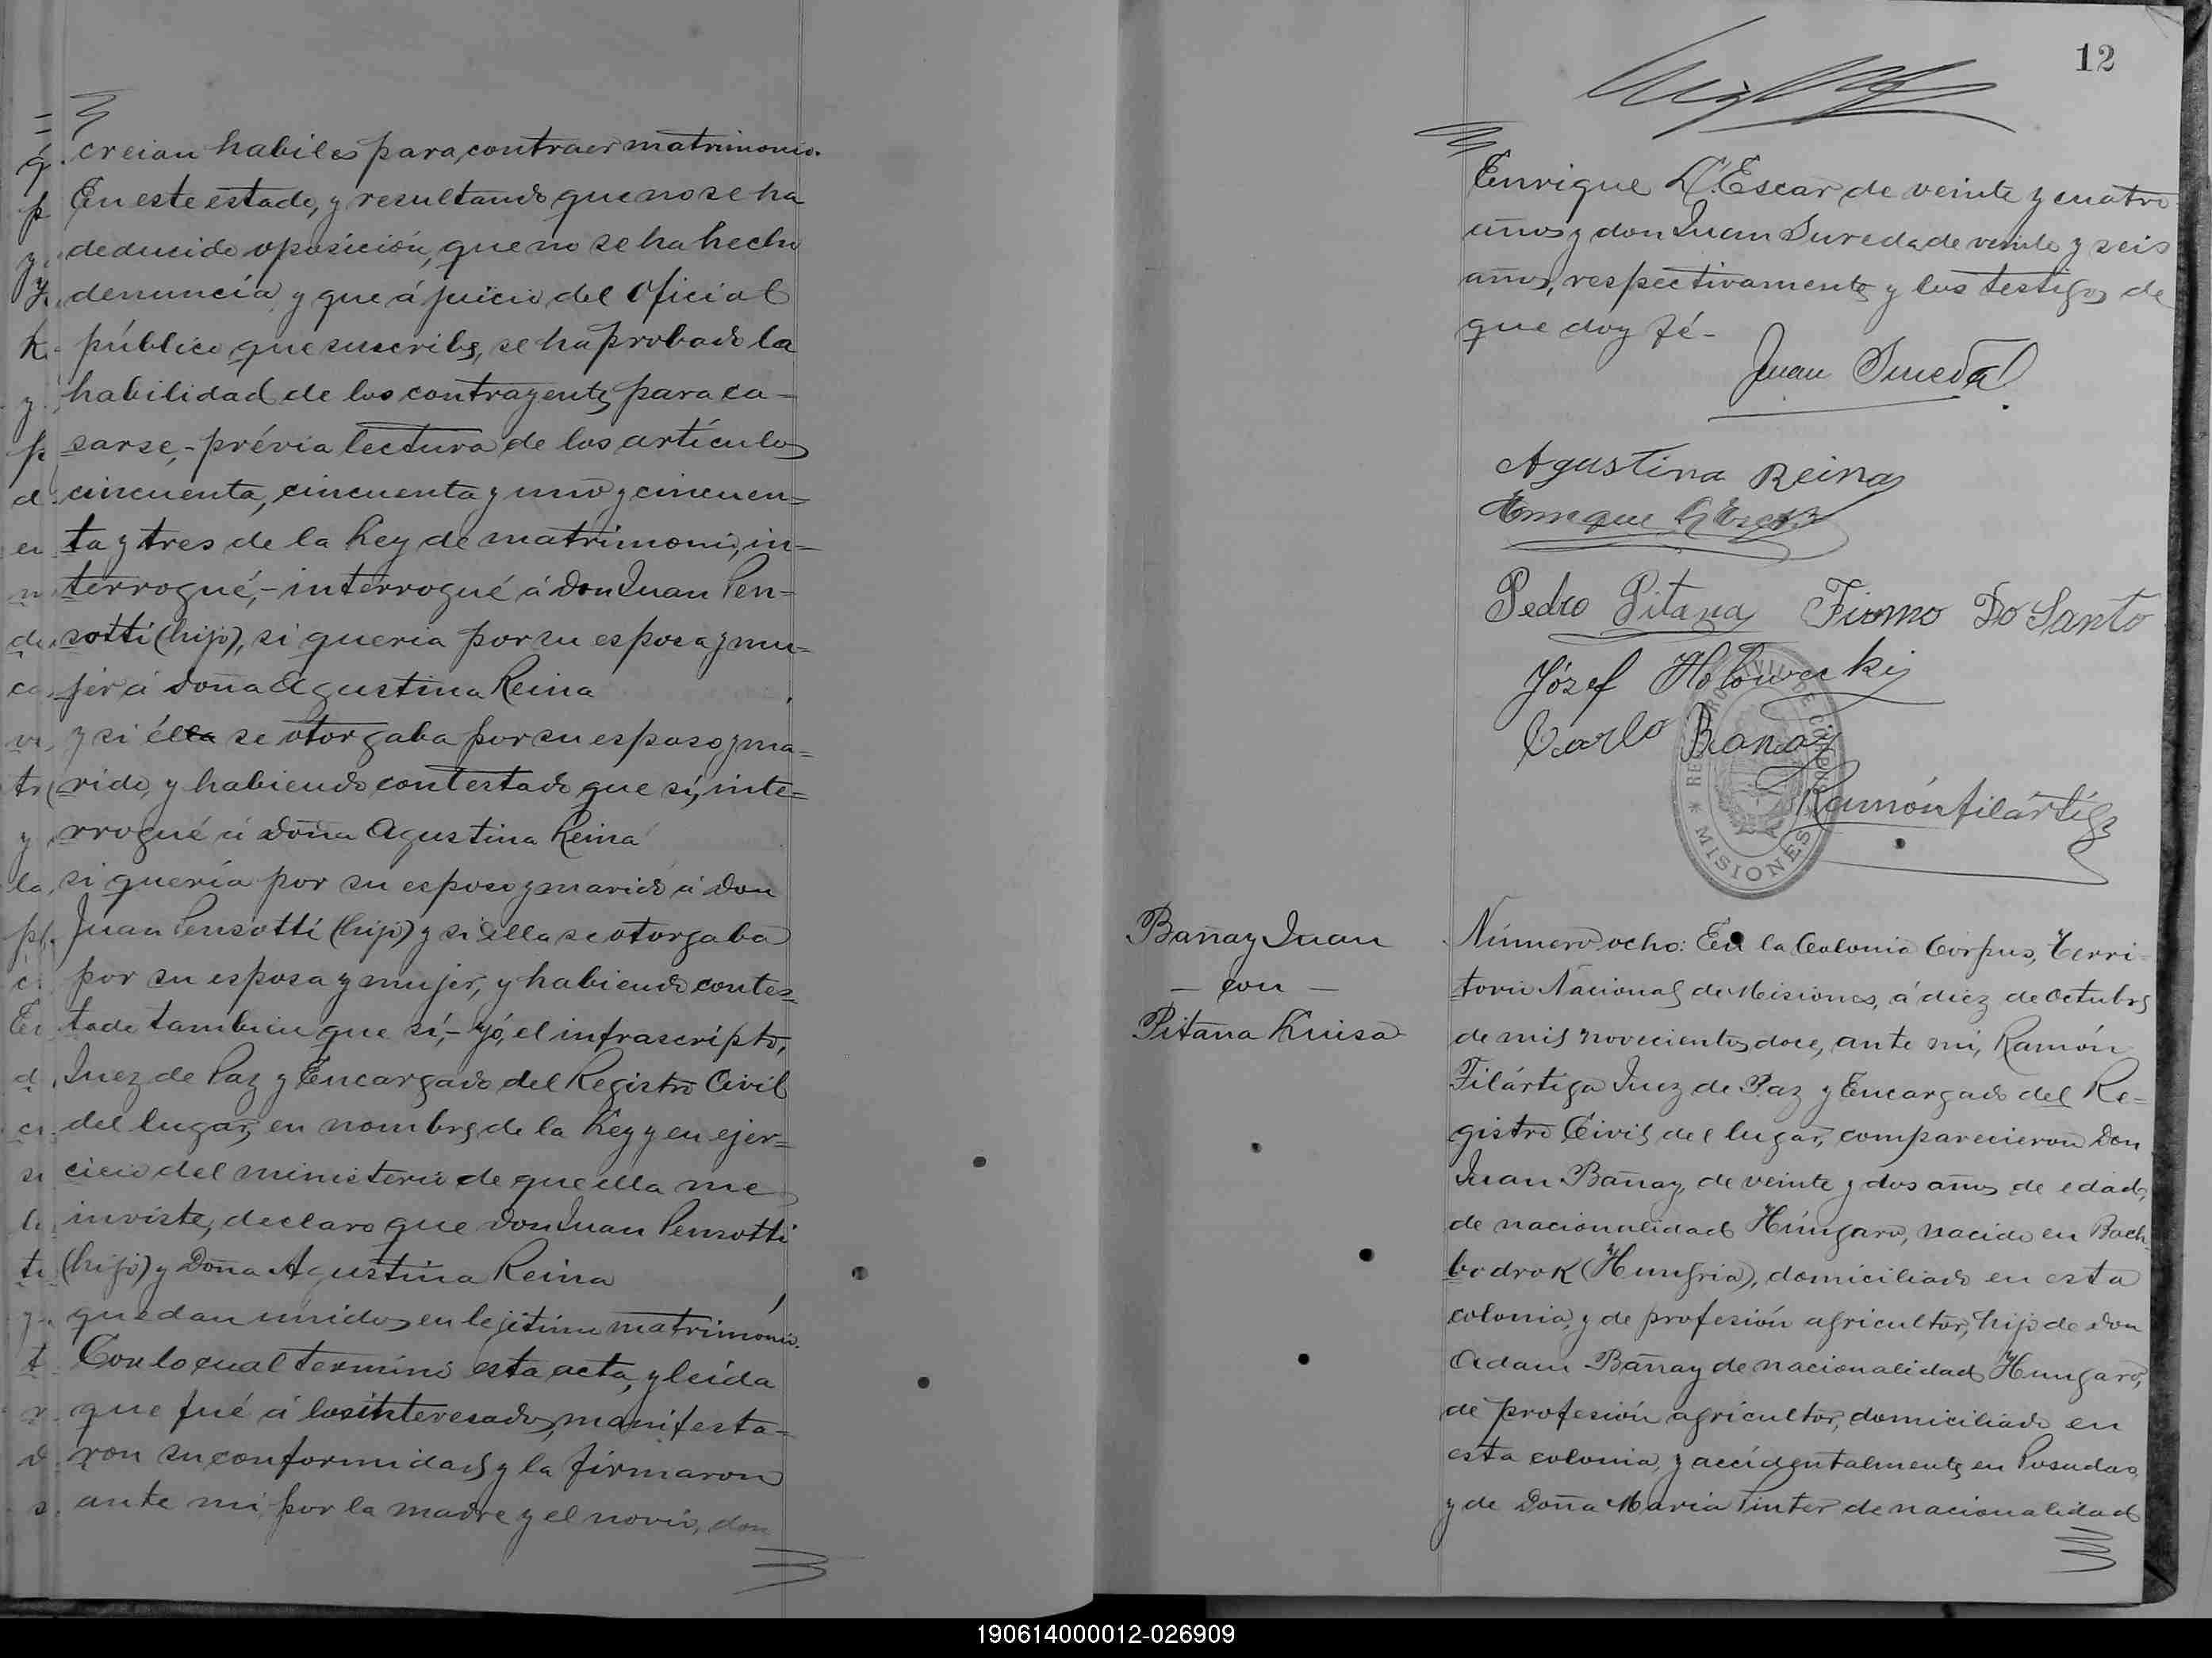 creian habiles para contraer matrimonio.
En este estado, y resultando que no se ha
deducido oposición, que no se ha hecho
denuncia, y que á juicio del Oficial
público que suscribe, se ha probado la
habilidad de los contrayentes para ca-
sarse,- prévia lectura de los artículos
cincuenta, cincuenta y uno y cincuen=
ta y tres de la Ley de matrimonio, in=
terrogué,- interrogué á don Juan Pen=
sotti (hijo), si queria por su esposa y mu=
jer á doña Agustina Reina
y si él se otorgaba por su esposo y ma=
rido, y habiendo contestado que sí, inte=
rrogué á doña Agustina Reina
si quería por su esposo y marido á don
Juan Pensotti (hijo) y si ella se otorgaba
por su esposa y mujer, y habiendo contes=
tado tambien que sí,- yó, el infrascripto,
Juez de Paz y Encargado del Registro Civil
del lugar, en nombre de la Ley y en ejer=
cicio del ministerio de que ella me
inviste, declaro que don Juan Pensotti
(hijo) y Doña Agustina Reina
quedan unidos en lejítimo matrimónio.
Con lo cual terminó esta acta, y leída
que fué á los interesados, manifesta=
ron su conformidad y la firmaron
ante mi, por la madre y el novio, don
12
Enrique L'Escar de veinte y cuatro
años y don Juan Sureda de veinte y seis
años, respectivamente y los testigos de
que doy fé-
Juan Sureda
Agustina Reina
Enrique
Pedro Pitana Firmo Do Santo
Józef
Carlo Banay
Ramón Filártiga
REGISTRO CIVIL DE CORPUS
* MISIONES *
Bañay Juan
- con -
Pitana Luisa
Número ocho: En la Colonia Corpus, Terri=
torio Nacional de Misiones, á diez de Octubre
de mil novecientos doce, ante mi, Ramón
Filártiga Juez de Paz y Encargado del Re=
gistro Civil del lugar, comparecieron Don
Juan Bañay, de veinte y dos años de edad,
de nacionalidad Húngaro, nacido en Bach-
bodrok (Hungria), domiciliado en esta
colonia, y de profesión agricultor, hijo de don
Adam Bañay de nacionalidad Hungaro,
de profesión agricultor, domiciliado en
esta colonia, y accidentalmente en Posadas,
y de Doña Maria Pinter de nacionalidad
190614000012-026909